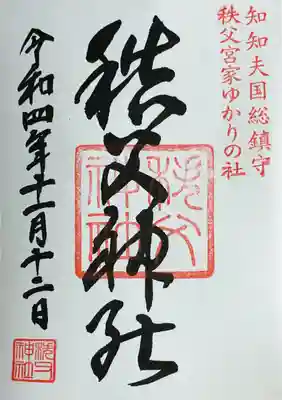 知知夫国総鎮守
秩父宮家ゆかりの社
秩父神社
令和四年十一月十二日
秩父
神社
秩父
神社